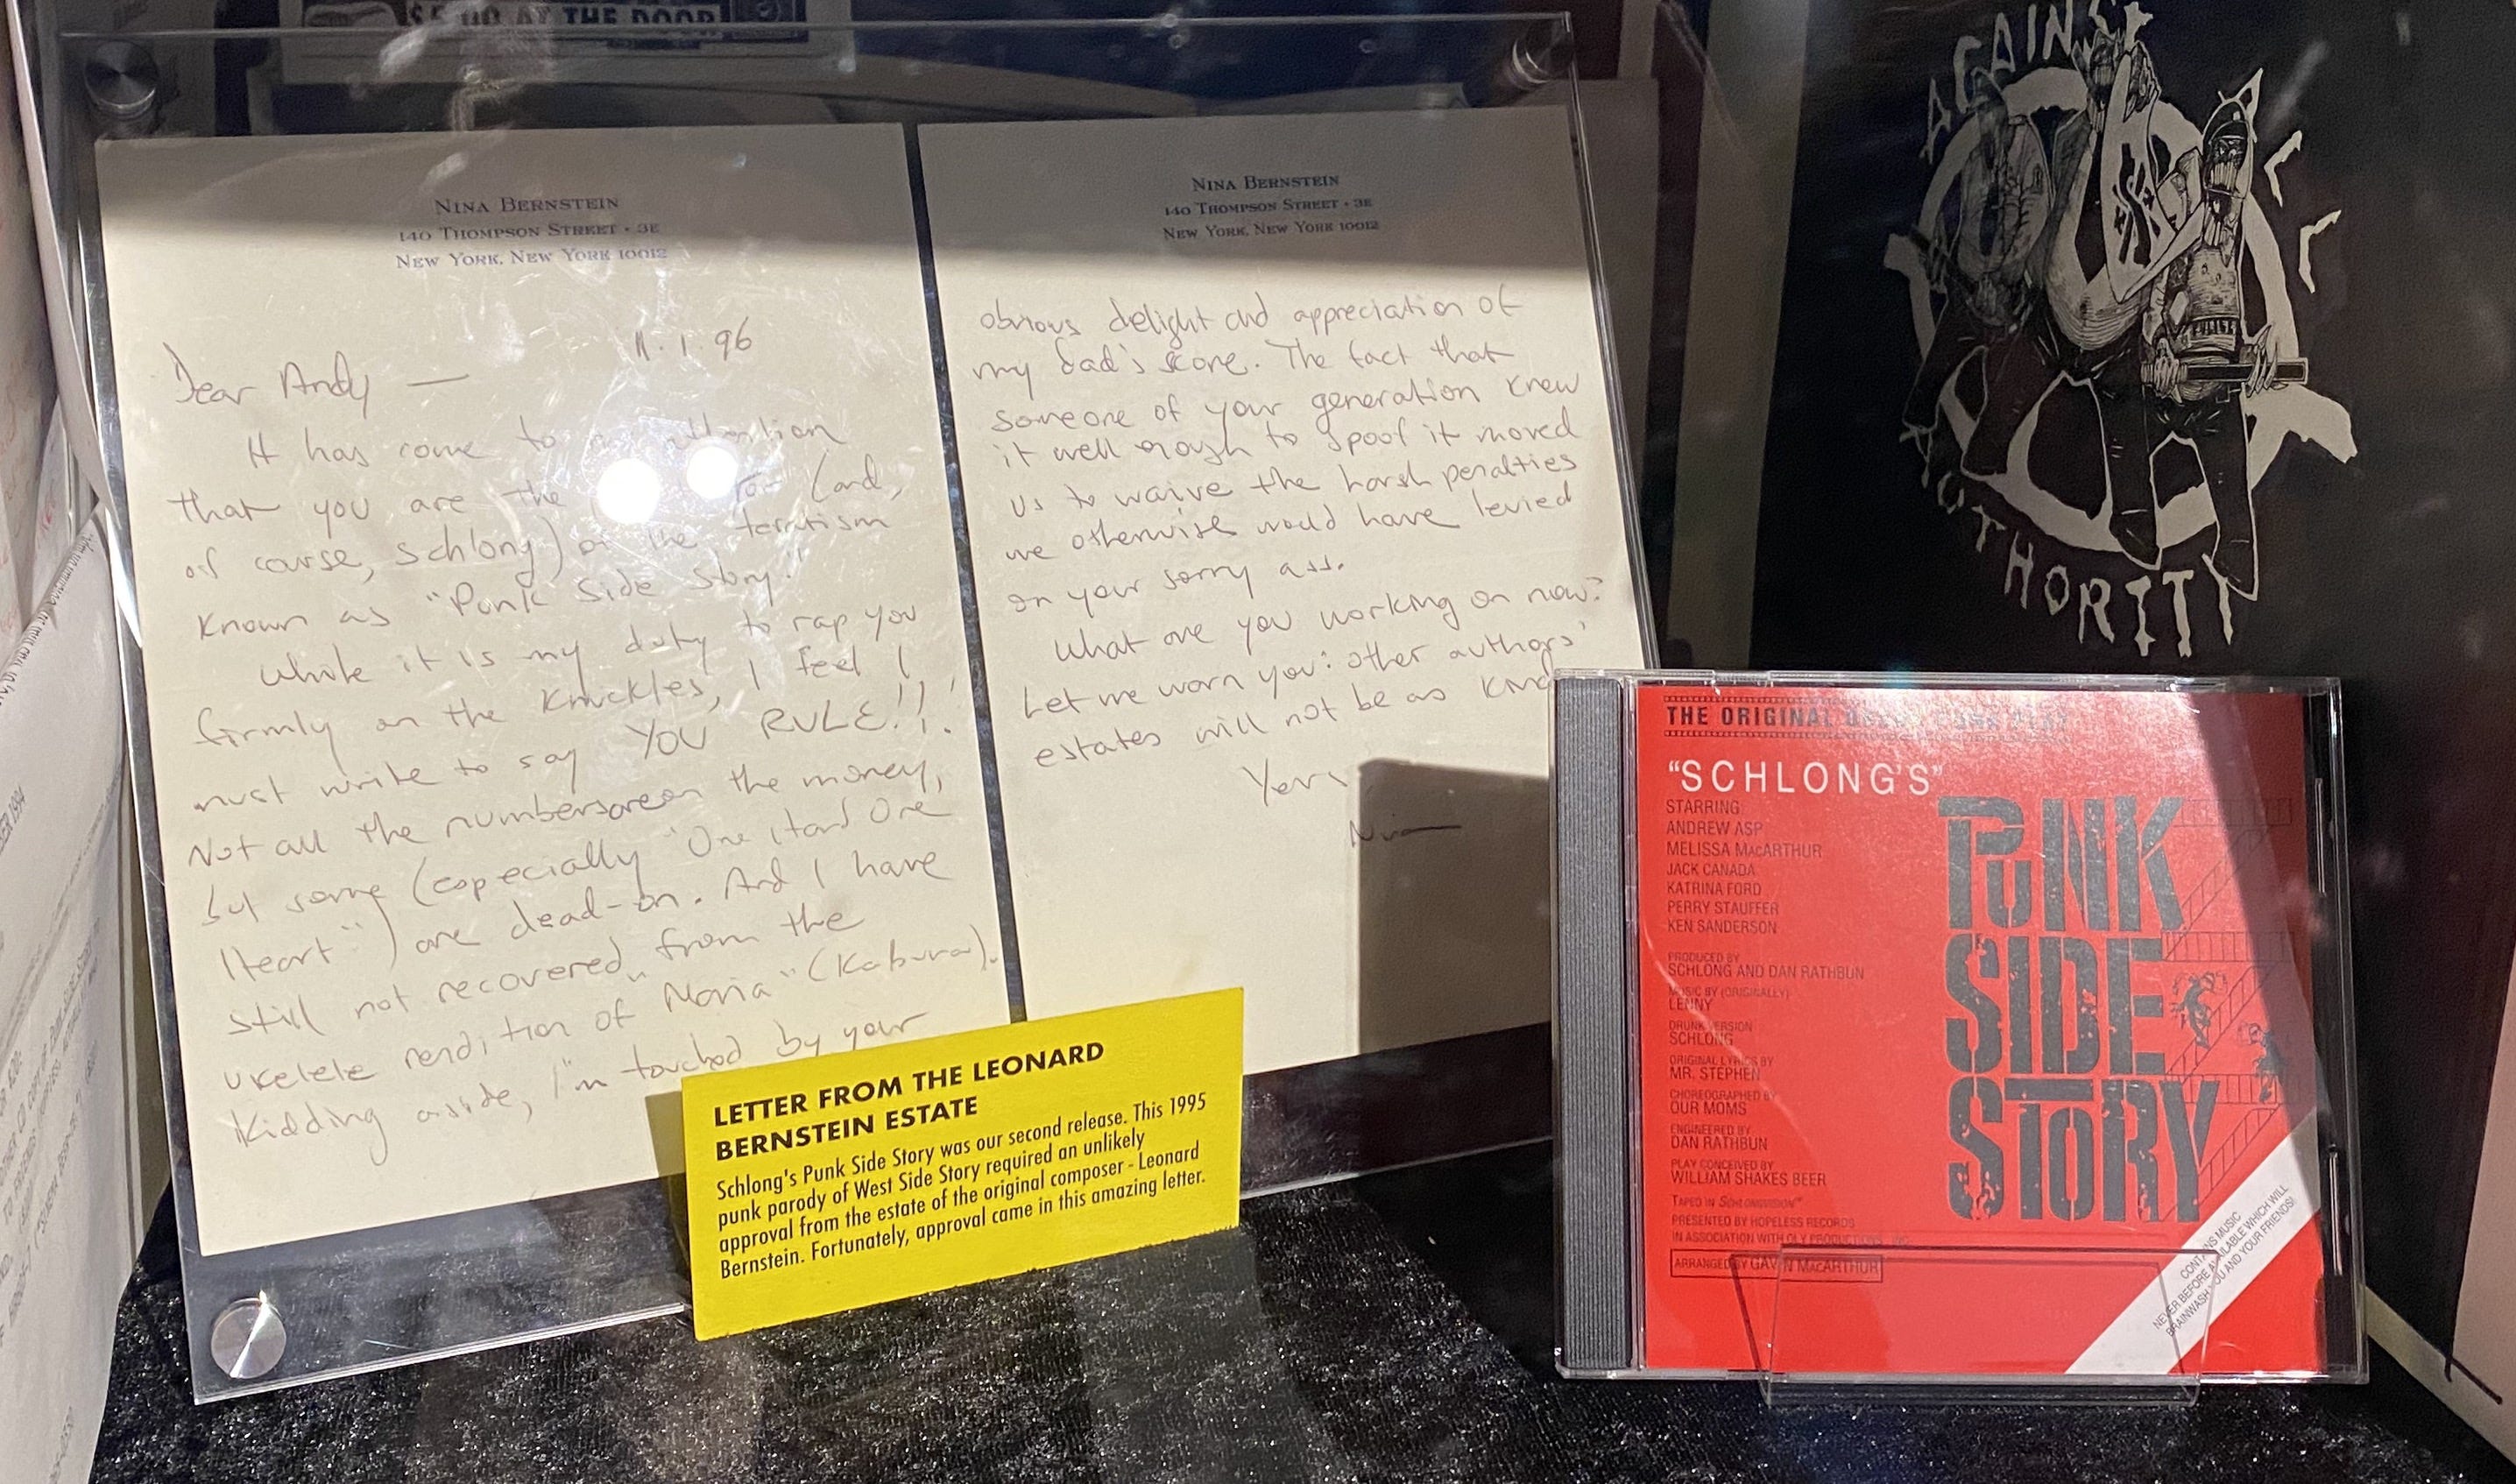 $5.00 AT THE DOOR
NINA BERNSTEIN
140 THOMPSON STREET • 3E
NEW YORK, NEW YORK 10012
11.1.96
Dear Andy —
It has come to my attention
that you are the for (and,
of course, schlong) of the terrorism
known as "Punk Side Story."
While it is my duty to rap you
firmly on the knuckles, I feel I
must write to say YOU RULE!!!
Not all the numbers are on the money,
but some (especially "One Hand One
Heart") are dead-on. And I have
still not recovered from the
ukelele rendition of "Maria"
Kidding aside, I'm touched by your
NINA BERNSTEIN
140 THOMPSON STREET • 3E
NEW YORK, NEW YORK 10012
obvious delight and appreciation of
my dad's score. The fact that
someone of your generation knew
it well enough to spoof it moved
us to waive the harsh penalties
we otherwise would have levied
on your sorry ass.
What are you working on now?
Let me warn you: other authors'
estates will not be as kind
Yers
Nina
LETTER FROM THE LEONARD
BERNSTEIN ESTATE
Schlong's Punk Side Story was our second release. This 1995
punk parody of West Side Story required an unlikely
approval from the estate of the original composer - Leonard
Bernstein. Fortunately, approval came in this amazing letter.
AGAINST
AUTHORITY
THE ORIGINAL
"SCHLONG'S"
PUNK
SIDE
STORY
STARRING:
ANDREW ASP
MELISSA MACARTHUR
JACK CANADA
KATRINA FORD
PERRY STAUFFER
KEN SANDERSON
PRODUCED BY
SCHLONG AND DAN RATHBUN
MUSIC BY (ORIGINALLY)
LENNY
DRUNK VERSION
SCHLONG
ORIGINAL LYRICS BY
MR. STEPHEN
CHOREOGRAPHED BY
OUR MOMS
ENGINEERED BY
DAN RATHBUN
PLAY CONCEIVED BY
WILLIAM SHAKES BEER
TAPED IN SCHLONGVISION™
PRESENTED BY HOPELESS RECORDS
IN ASSOCIATION WITH OLY PRODUCTIONS, INC.
ARRANGED BY GAVIN MACARTHUR
CONTAINS MUSIC
NEVER BEFORE AVAILABLE WHICH WILL
BRAINWASH YOU AND YOUR FRIENDS!